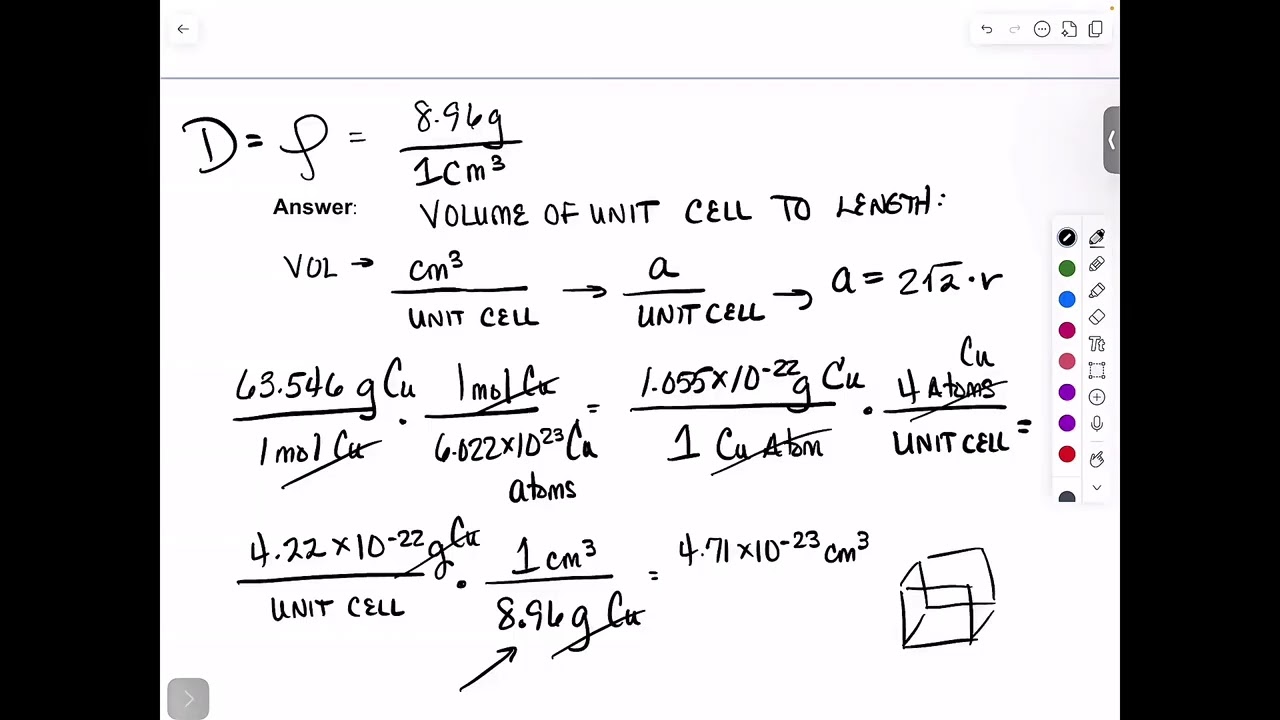 D = ρ = 8.96g / 1cm³
Answer: VOLUME OF UNIT CELL TO LENGTH:
VOL → cm³ / UNIT CELL → a / UNIT CELL → a = 2√2 · r
63.546 g Cu / 1 mol Cu · 1 mol Cu / 6.022×10²³ Cu atoms = 1.055×10⁻²² g Cu / 1 Cu Atom · 4 Cu Atoms / UNIT CELL =
4.22×10⁻²² g Cu / UNIT CELL · 1 cm³ / 8.96g Cu = 4.71×10⁻²³ cm³
Tt